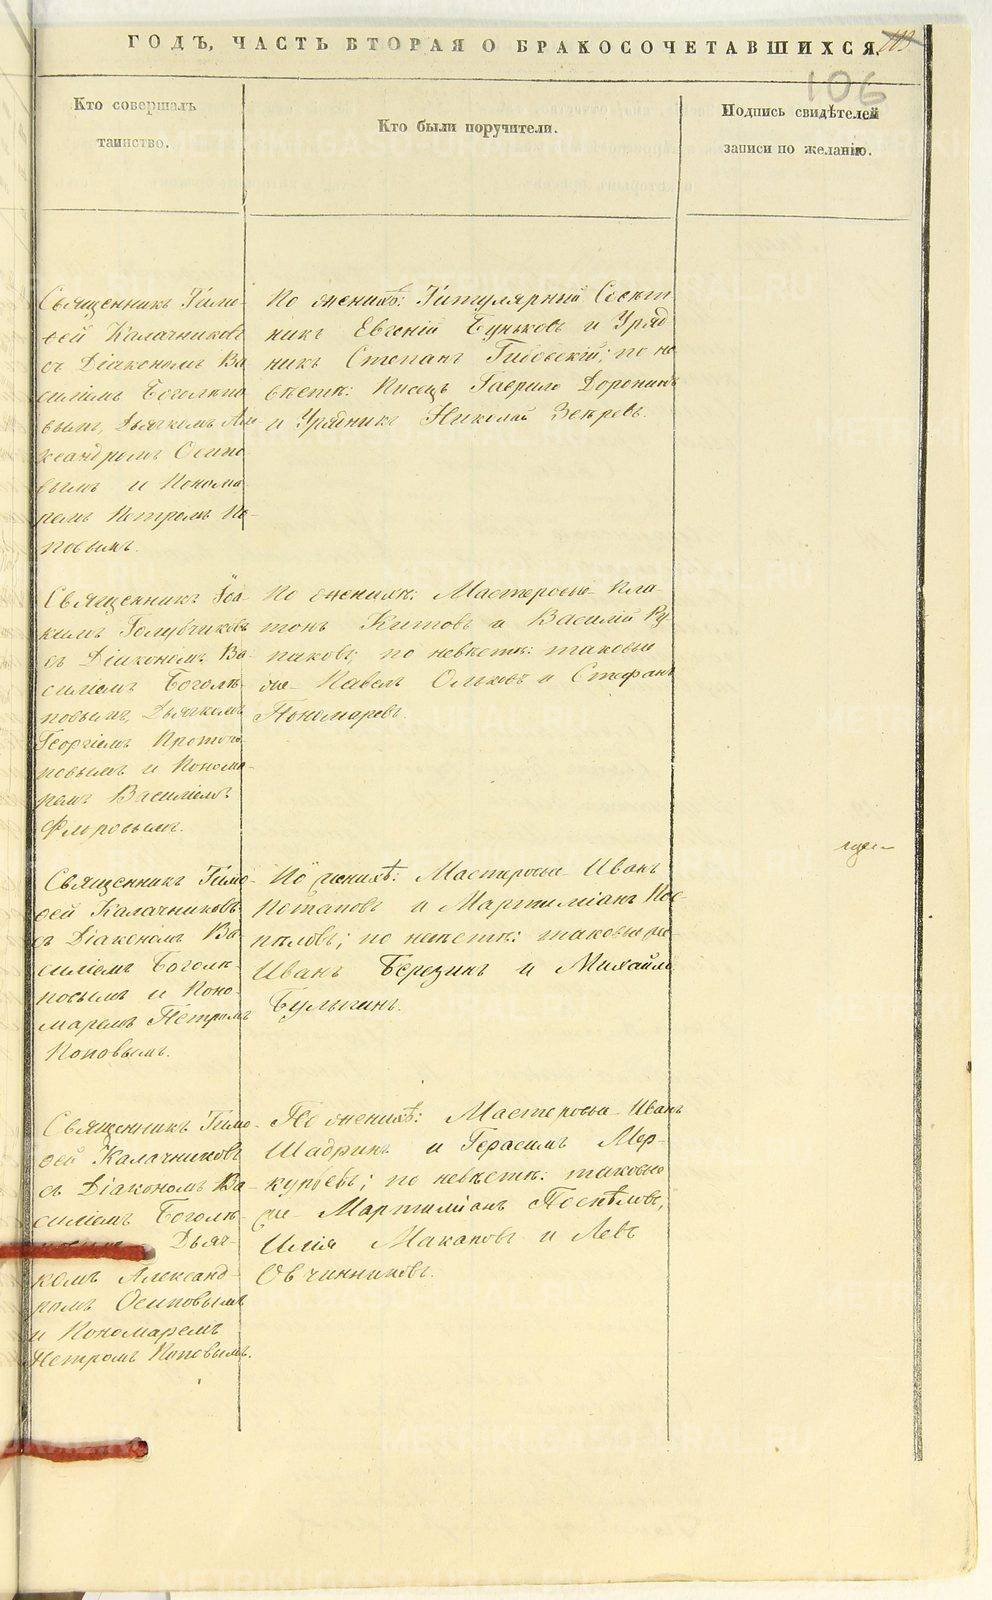 ГОДЪ, ЧАСТЬ ВТОРАЯ О БРАКОСОЧЕТАВШИХСЯ.
103
106
Кто совершалъ
таинство.
Кто были поручители.
Подпись свидѣтелей
записи по желанію.
Священникъ Тимо-
ѳей Калачниковъ
съ Діакономъ Ва
силіемъ Боголѣпо
вымъ, Дьячкомъ Але
ксандромъ Осипо
вымъ и Понома
ремъ Петромъ По-
повымъ.
По женихѣ: Титулярный Совѣт
никъ Евгеній Буньковъ и Уряд
никъ Степанъ по не
вѣстѣ: Писецъ Гаврило Доронинъ
и Урядникъ Николай
Священникъ Іоа-
кимъ Голубчиковъ
съ Діакономъ Ва-
силіемъ Боголѣ-
повымъ, Дьячкомъ
Георгіемъ Протопо
повымъ и Понома-
ремъ Василіемъ
Флеровымъ.
По женихѣ: Мастеровые Пла-
тонъ Китовъ и Василій Ру-
паковъ; по невѣстѣ: таковые
же Павелъ Ольковъ и Стефанъ
Пономаревъ.
Священникъ Тимо-
ѳей Калачниковъ
съ Діакономъ Ва-
силіемъ Боголѣ-
повымъ и Поно-
маремъ Петромъ
Поповымъ.
По женихѣ: Мастеровые Иванъ
Потаповъ и Мартиміанъ Пос-
пѣловъ; по невѣстѣ: таковые же
Иванъ Березинъ и Михайло
Булыгинъ.
Священникъ Тимо-
ѳей Калачниковъ
съ Діакономъ Ва-
силіемъ Боголѣ-
повымъ Дьяч-
комъ Александ-
ромъ Осиповымъ
и Пономаремъ
Петромъ Поповымъ.
По женихѣ: Мастеровые Иванъ
Шадринъ и Герасимъ Мер-
курьевъ; по невѣстѣ: таковые
же Мартиміанъ Поспѣловъ,
Илія Макаповъ и Левъ
Овчинниковъ.
METRIKI.GASO-URAL.RU